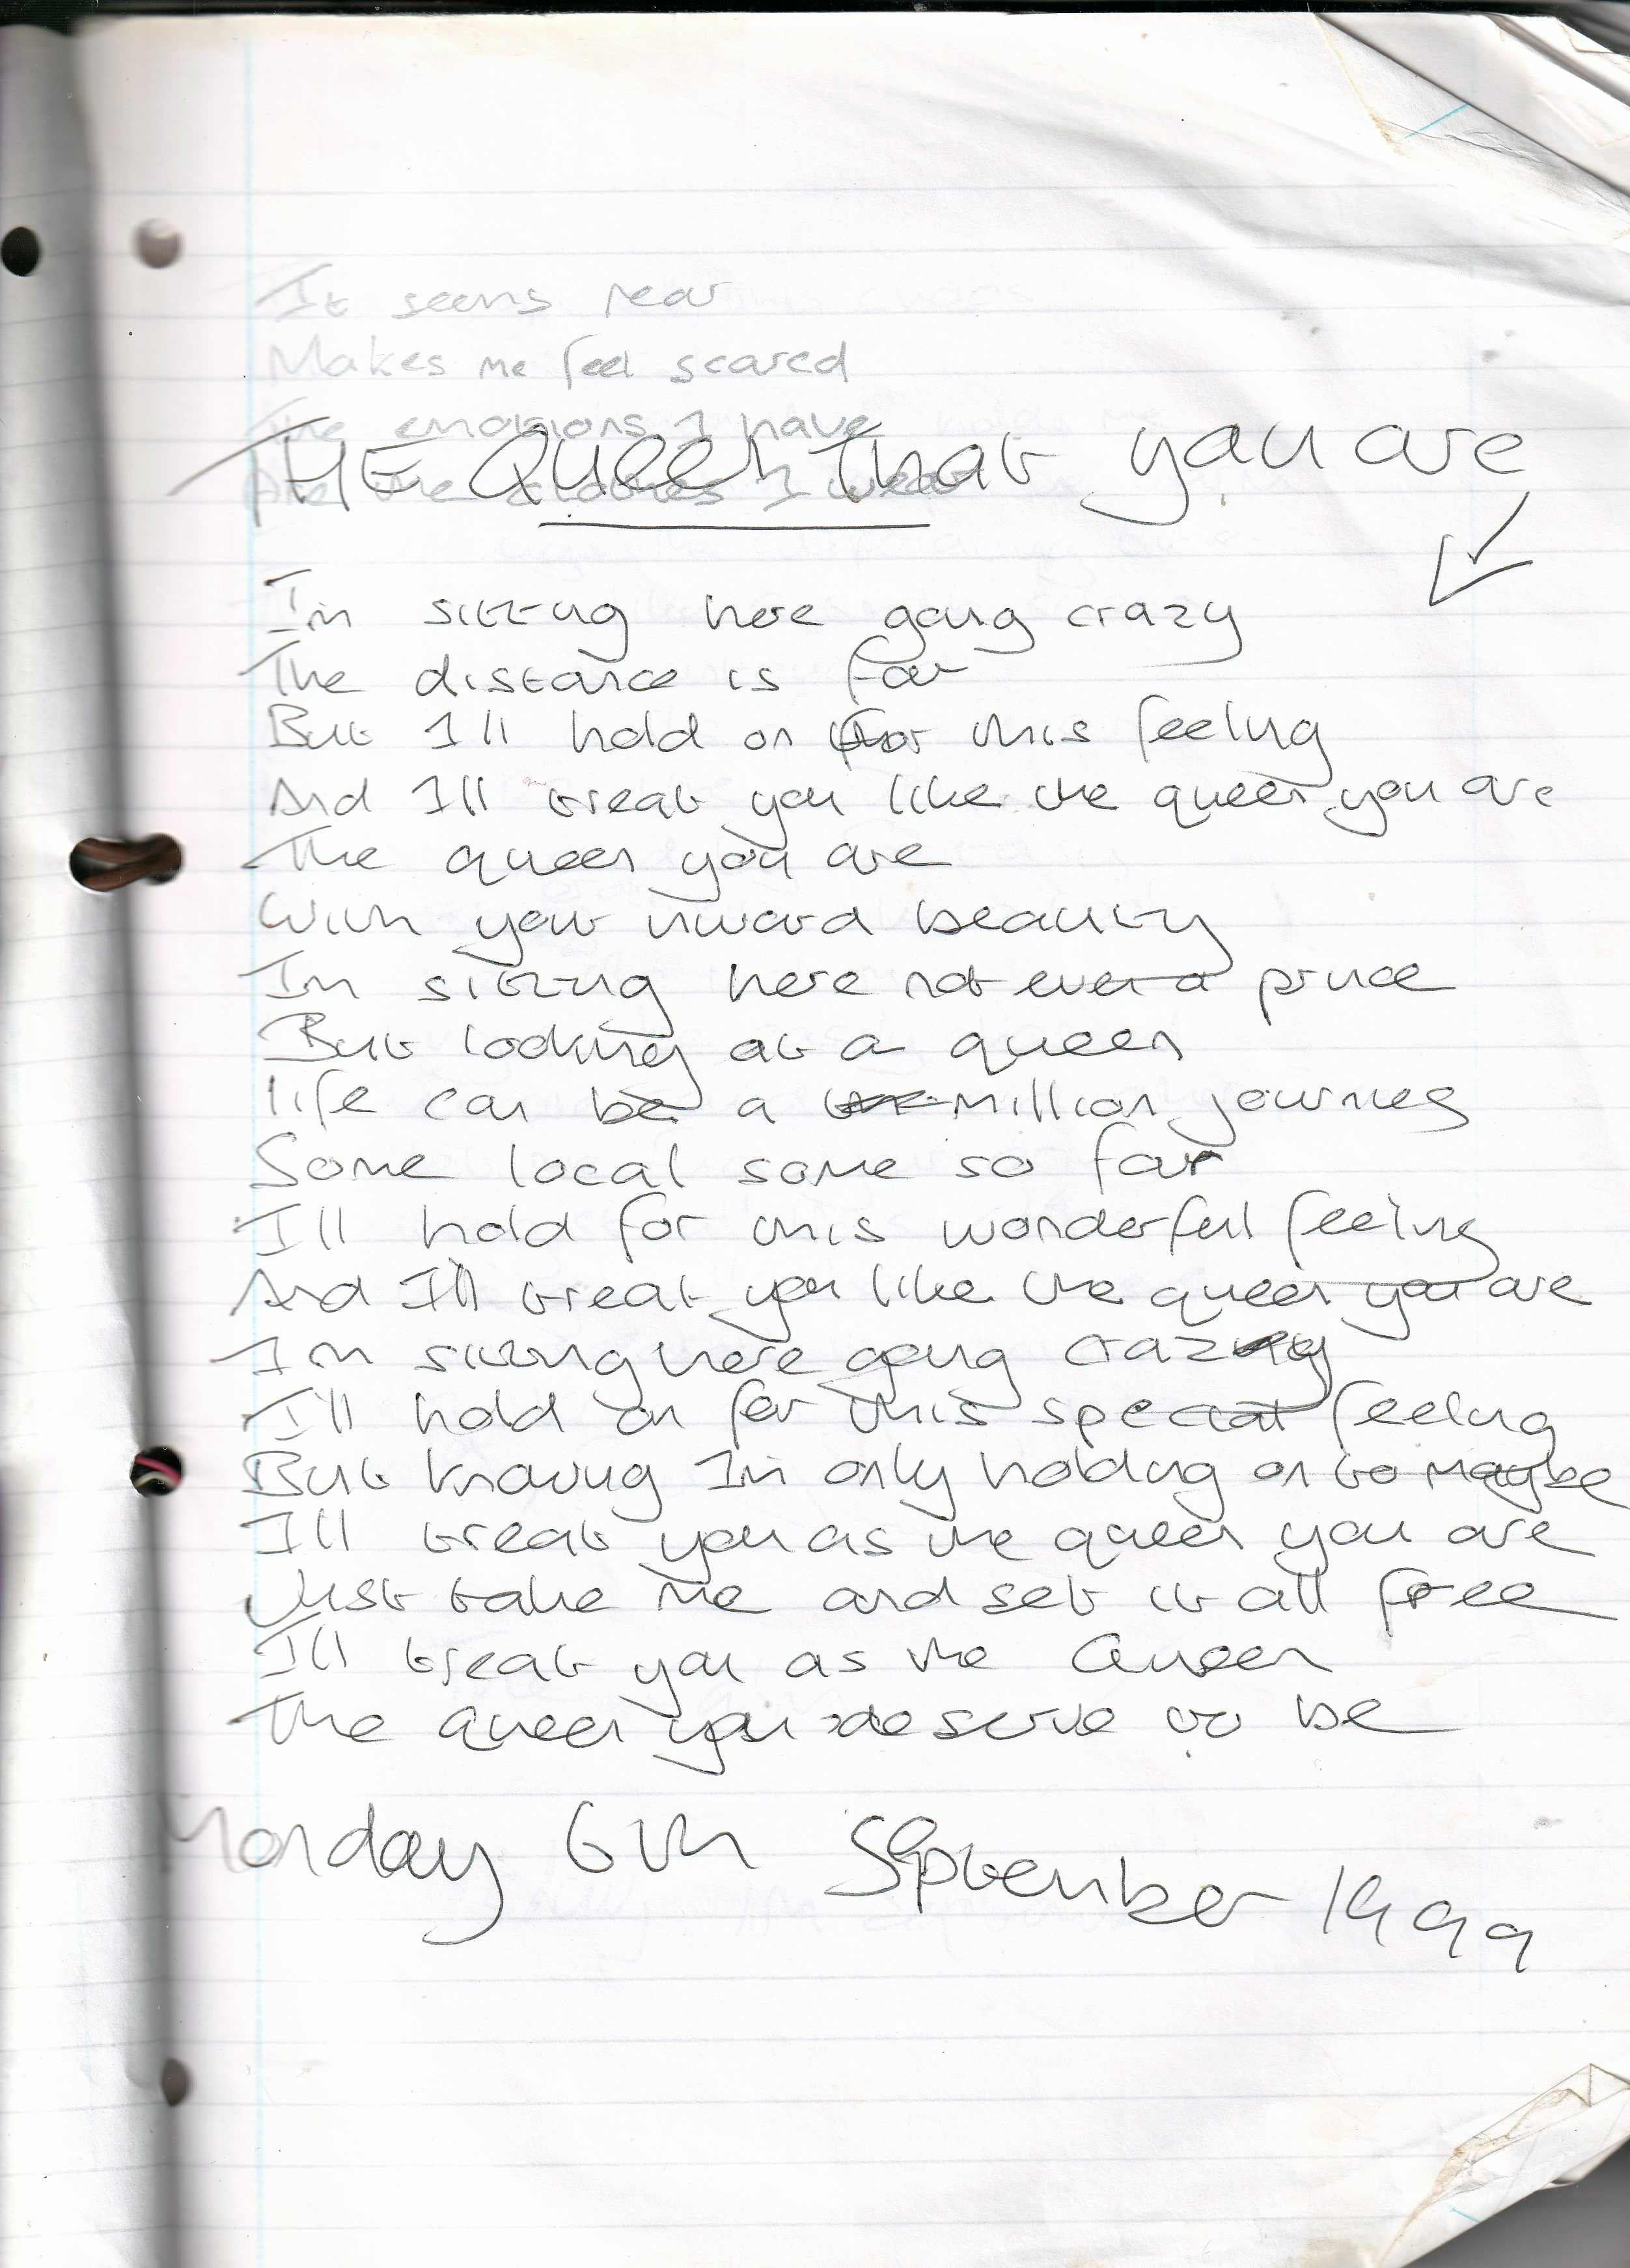 It seems near
Makes me feel scared
The emotions I have
Are the clothes I wear
THE Queen That you are
Im sitting here going crazy
The distance is far
But I'll hold on for this feeling
And I'll treat you like the queen you are
The queen you are
With your inward beauty
Im sitting here not even a prince
But looking at a queen
life can be a million journeys
Some local some so far
I'll hold for this wonderful feeling
And I'll treat you like the queen you are
Im sitting here going crazy
I'll hold on for this special feeling
But knowing Im only holding on to maybe
I'll treat you as the queen you are
Just take me and set it all free
I'll treat you as the Queen
The queen you deserve to be
Monday 6th September 1999